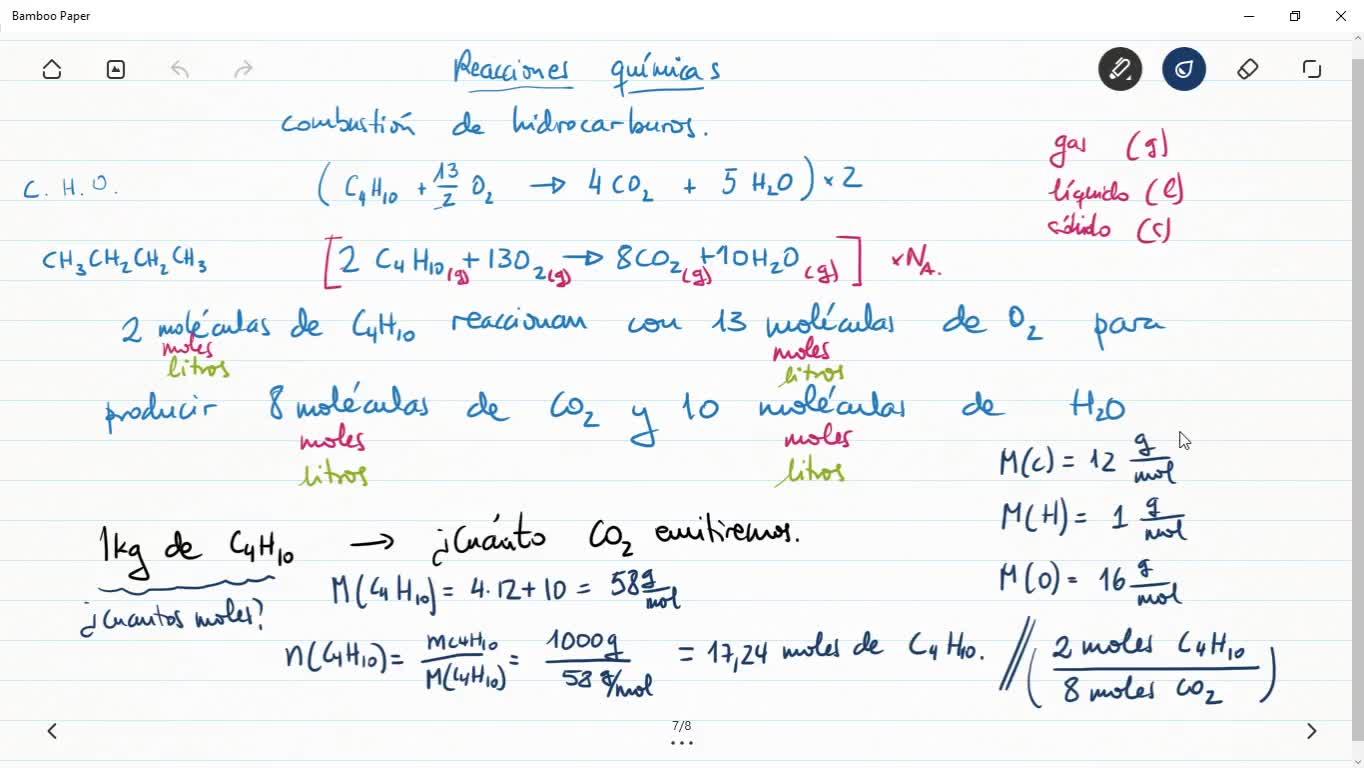 Bamboo Paper
Reacciones químicas
combustión de hidrocarburos.
gas (g)
líquido (l)
sólido (s)
C. H. O.
(C₄H₁₀ + 13/2 O₂ → 4 CO₂ + 5 H₂O) × 2
CH₃CH₂CH₂CH₃
[2 C₄H₁₀(g) + 13O₂(g) → 8CO₂(g) + 10H₂O(g)] × N_A.
2 moléculas de C₄H₁₀ reaccionan con 13 moléculas de O₂ para
moles moles
litros litros
producir 8 moléculas de CO₂ y 10 moléculas de H₂O
moles moles
litros litros
M(C) = 12 g/mol
M(H) = 1 g/mol
M(O) = 16 g/mol
1kg de C₄H₁₀ → ¿Cuánto CO₂ emitiremos.
¿Cuantos moles?
M(C₄H₁₀) = 4·12 + 10 = 58 g/mol
n(C₄H₁₀) = mC₄H₁₀/M(C₄H₁₀) = 1000g/58 g/mol = 17,24 moles de C₄H₁₀. // (2 moles C₄H₁₀/8 moles CO₂)
7/8